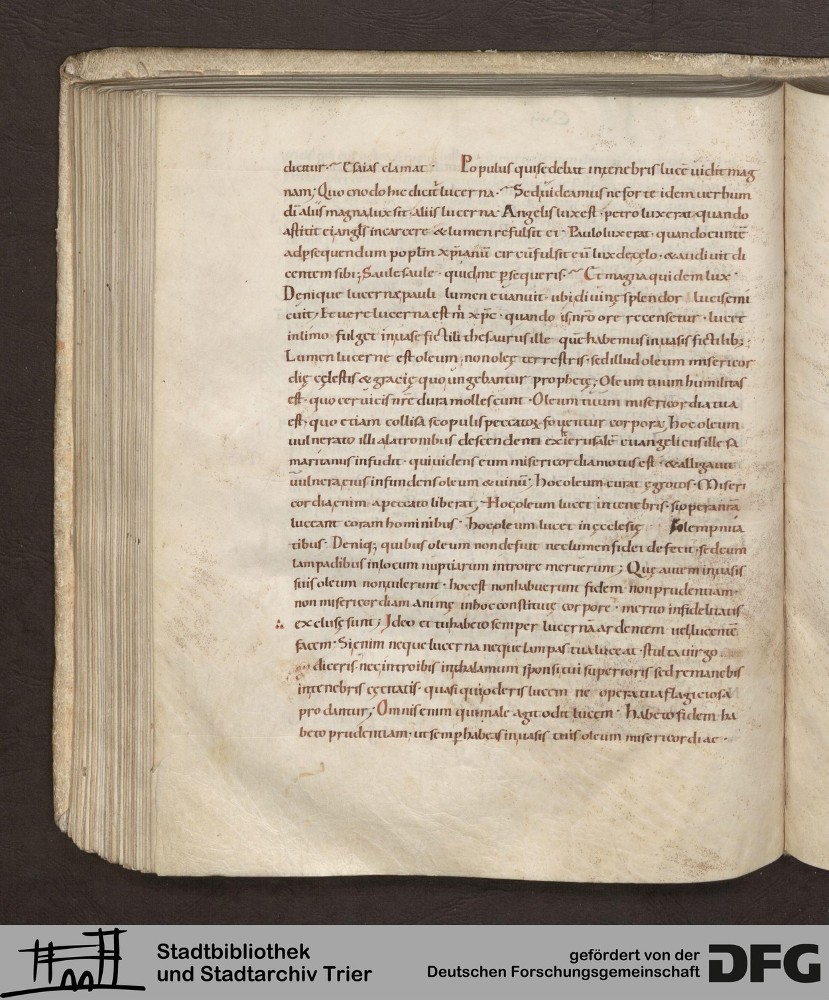 dicitur· Esaias clamat· Populus qui sedebat intenebris lucē uidit mag
nam; Quomodo hic dicit̄ lucerna· Sed uideamus ne forte idem uerbum
dī aliis magna lux sit· aliis lucerna· Angelis lux est· petro lux erat· quando
astitit ei angl̄s in carcere· & lumen refulsit ei· Paulo lux erat· quando euntē
ad ꝑsequendum popl̄m xp̄ianū circū fulsit eū lux de cęlo· & audiuit di
centem sibi; Saule saule· quid me ꝑsequeris· Et magna quidem lux·
Denique lucerna pauli lumen euanuit· ubi diuinę splendor lucis emi
cuit; Et uere lucerna est m̄ xp̄c· quando is nr̄o ore recensetur· lucet
in limo fulget in uase fictili thesaurus ille quē habemus in uasis fictilib;
Lumen lucerne est oleum· non oleę terrestris· sed illud oleum misericor
dię cęlestis & gracię quo ungebantur prophetę; Oleum tuum humilitas
est· quo ceruicis nr̄e dura mollescunt· Oleum tuum misericordia tua
est· quo etiam collisa scopulis peccatoꝝ fouentur corpora; hoc oleum
uulnerato illi a latronibus descendenti ex ierusalē euangelicus ille sa
maritanus infudit· qui uidens eum misericordia motus est· & alligauit
uulnera eius infundens oleum & uinū· hoc oleum curat ęgrotos· Miseri
cordia enim a peccato liberat; Hoc oleum lucet in tenebris· si opera nr̄a
luceant coram hominibus· hoc oleum lucet in ęcclesię solempnita
tibus· Deniq; quibus oleum non defuit nec lumen fidei defecit· sed cum
lampadibus in locum nuptiarum introire meruerunt; Quę autem in uasis
suis oleum non tulerunt· hoc est non habuerunt fidem· non prudentiam·
non misericordiam animę in hoc constitutę corpore· merito infidelitatis
exclusę sunt; Ideo et tu habeto semper lucernā ardentem uel lucentē
facem· Si enim neque lucerna neque lampas tua luceat· stulta uirgo
diceris· nec introibis in thalamum sponsi tui superioris sed remanebis
in tenebris cęcitatis· quasi qui oderis lucem ne opera tua flagiciosa
prodantur; Omnis enim qui male agit odit lucem· habeto fidem ha
beto prudentiam· ut semꝑ habeas in uasis tuis oleum misericordiae·
Stadtbibliothek
und Stadtarchiv Trier
gefördert von der
Deutschen Forschungsgemeinschaft
DFG